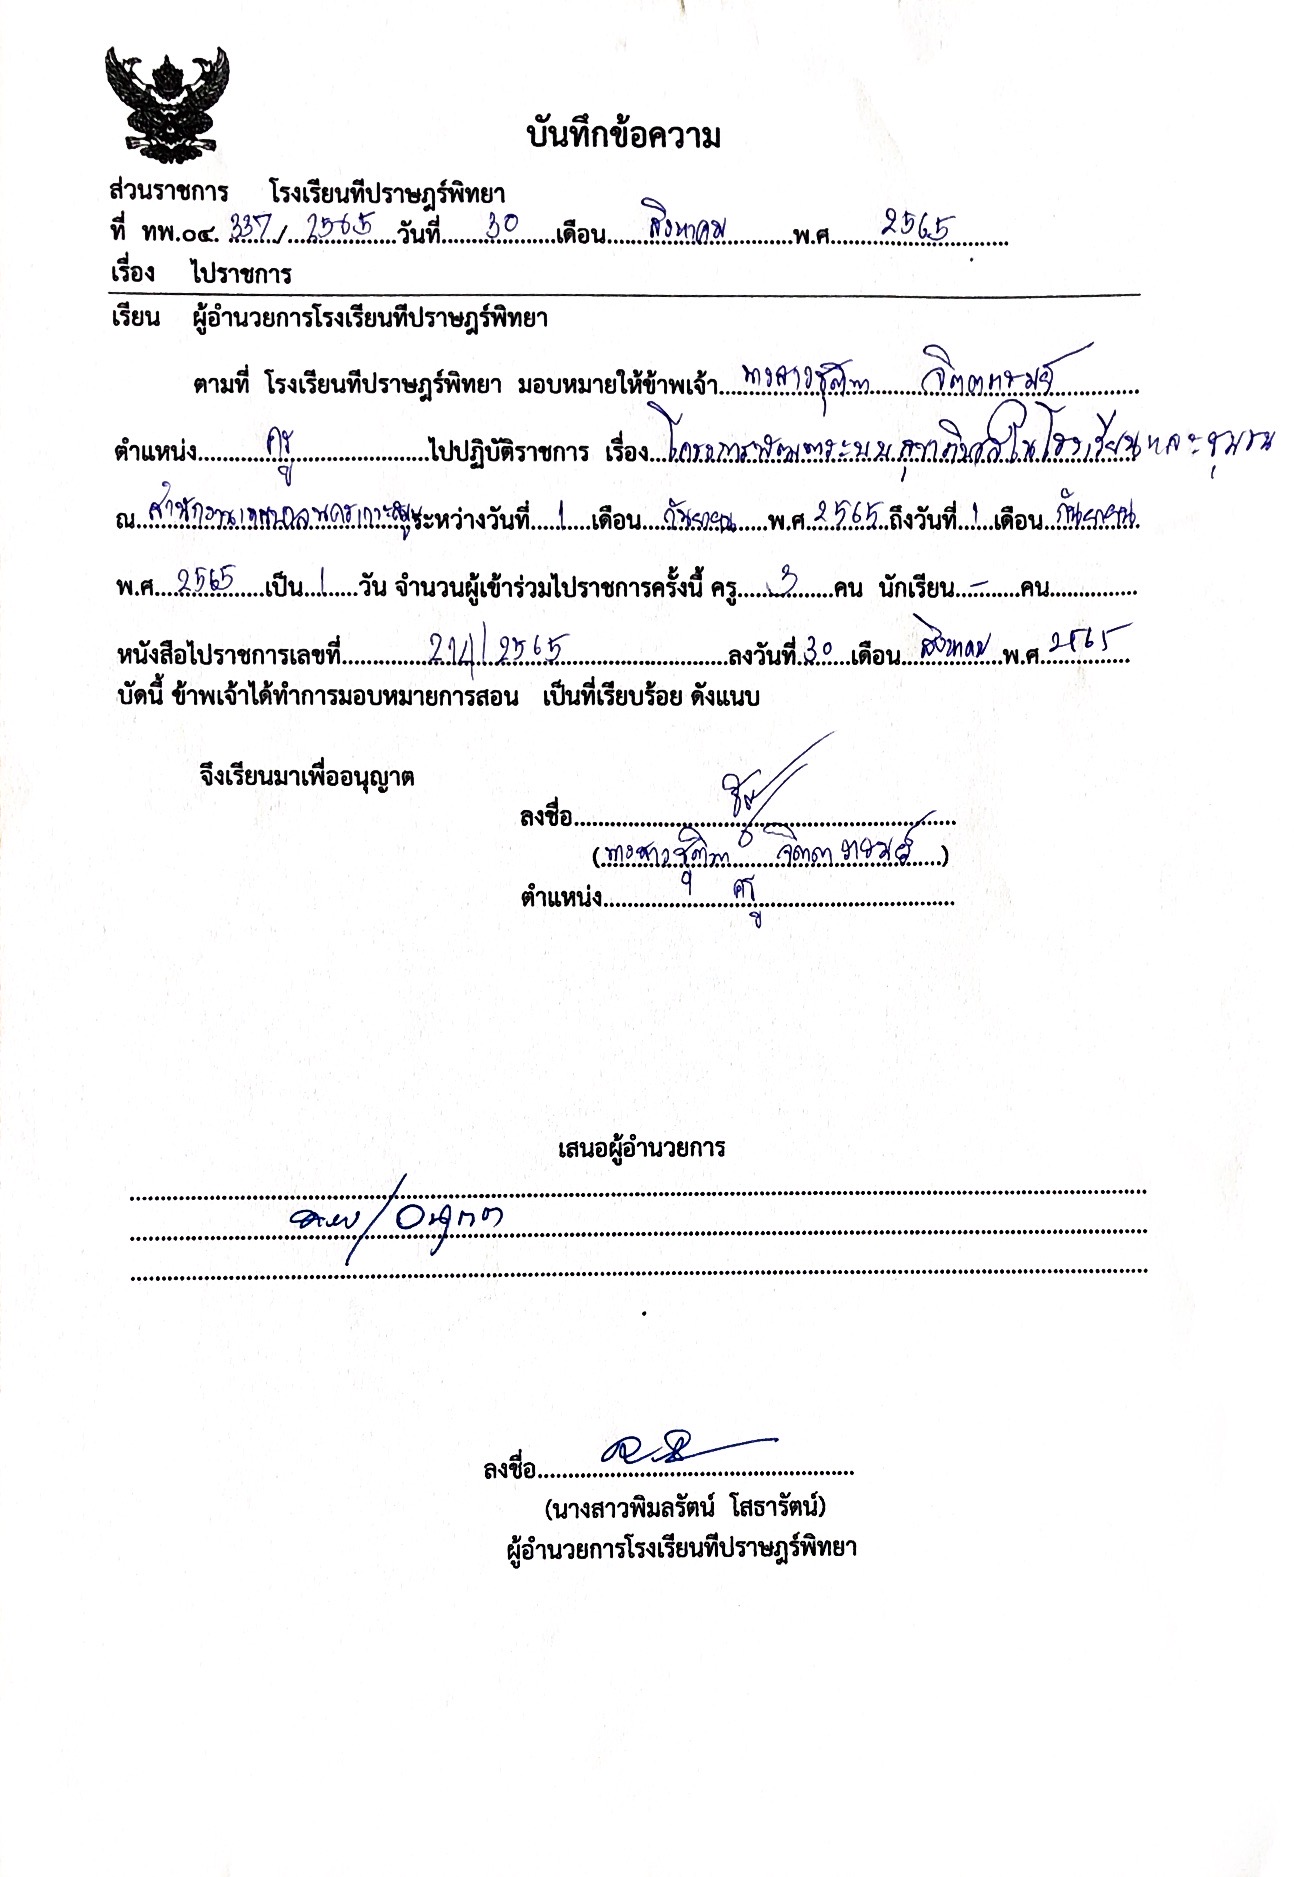 บันทึกข้อความ
ส่วนราชการ โรงเรียนทีปราษฎร์พิทยา
ที่ ทพ.๐๔. 337/ 2565 วันที่ 30 เดือน สิงหาคม พ.ศ. 2565
เรื่อง ไปราชการ
เรียน ผู้อำนวยการโรงเรียนทีปราษฎร์พิทยา
ตามที่ โรงเรียนทีปราษฎร์พิทยา มอบหมายให้ข้าพเจ้า นางสาวชุติภา
ตำแหน่ง ครู ไปปฏิบัติราชการ เรื่อง โครงการพัฒนาระบบสุขาภิบาลในโรงเรียนและชุมชน
ณ สำนักงานเทศบาลนครเกาะสมุย ระหว่างวันที่ 1 เดือน กันยายน พ.ศ. 2565 ถึงวันที่ 1 เดือน กันยายน
พ.ศ. 2565 เป็น 1 วัน จำนวนผู้เข้าร่วมไปราชการครั้งนี้ ครู 3 คน นักเรียน - คน
หนังสือไปราชการเลขที่ 214/2565 ลงวันที่ 30 เดือน สิงหาคม พ.ศ. 2565
บัดนี้ ข้าพเจ้าได้ทำการมอบหมายการสอน เป็นที่เรียบร้อย ดังแนบ
จึงเรียนมาเพื่ออนุญาต
ลงชื่อ
(นางสาวชุติภา )
ตำแหน่ง ครู
เสนอผู้อำนวยการ
ทราบ/อนุญาต
ลงชื่อ
(นางสาวพิมลรัตน์ โสธารัตน์)
ผู้อำนวยการโรงเรียนทีปราษฎร์พิทยา